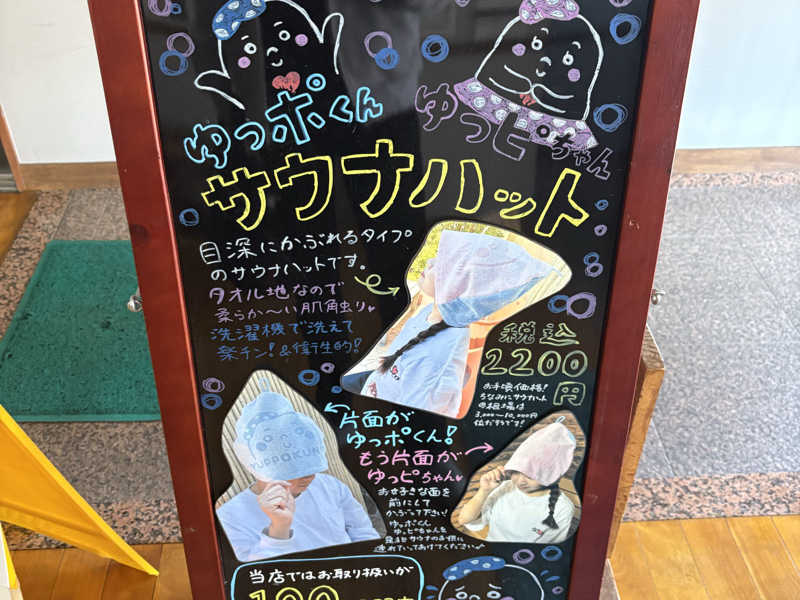 ゆっポくん
ゆっピちゃん
サウナハット
目深にかぶれるタイプ
のサウナハットです。
タオル地なので
柔らか〜い肌触り♥
洗濯機で洗えて
楽チン!&衛生的!
税込
2200円
お手頃価格!
ちなみにサウナハット
の相場は
3,000〜10,000円
位だそうです!
YUPPOKUN
片面が
ゆっポくん!
もう片面が
ゆっピちゃん♥
お好きな面を
前にして
かぶって下さい!
ゆっポくん
ゆっピちゃんを
是非サウナのお供に
連れていってあげてください♪
当店ではお取り扱いが